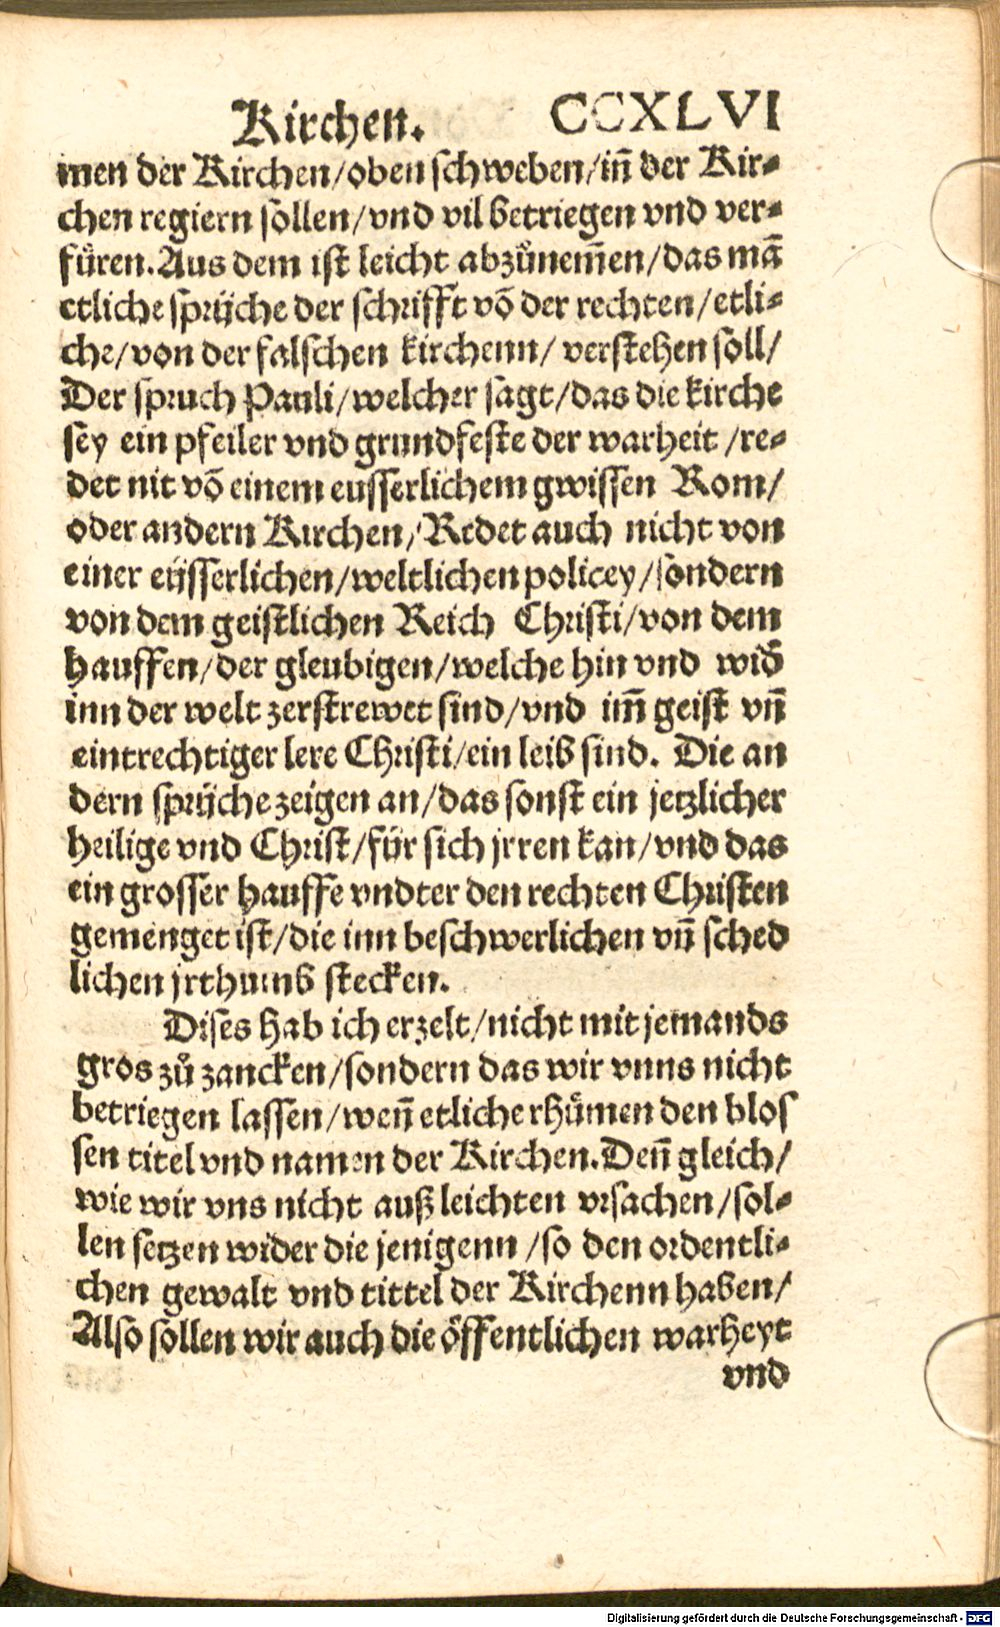 Kirchen. CCXLVI
men der Kirchen/oben schweben/iñ der Kir⸗
chen regiern sollen/vnd vil betriegen vnd ver⸗
fuͤren. Aus dem ist leicht abzůnem̃en/das mã
etliche sprüche der schrifft võ der rechten/etli⸗
che/von der falschen kirchenn/ verstehen soll/
Der spruch Pauli/welcher sagt/das die kirche
sey ein pfeiler vnd grundfeste der warheit /re⸗
det nit võ einem eusserlichem gwissen Rom/
oder andern Kirchen/Redet auch nicht von
einer eüsserlichen/weltlichen policey/sondern
von dem geistlichen Reich Christi/von dem
hauffen/der gleubigen/welche hin vnd wid̃
inn der welt zerstrewet sind/vnd im̃ geist vñ
eintrechtiger lere Christi/ein leib sind. Die an
dern sprüche zeigen an/das sonst ein jetzlicher
heilige vnd Christ/für sich jrren kan/vnd das
ein grosser hauffe vndter den rechten Christen
gemenget ist/die inn beschwerlichen vñ sched
lichen jrthumb stecken.
Dises hab ich erzelt/nicht mit jemands
gros zů zancken/sondern das wir vnns nicht
betriegen lassen/weñ etliche rhuͤmen den blos
sen titel vnd namen der Kirchen. Deñ gleich/
wie wir vns nicht auß leichten vrsachen/sol⸗
len setzen wider die jenigenn /so den ordentli⸗
chen gewalt vnd tittel der Kirchenn haben/
Also sollen wir auch die öffentlichen warheyt
vnd
Digitalisierung gefördert durch die Deutsche Forschungsgemeinschaft - DFG